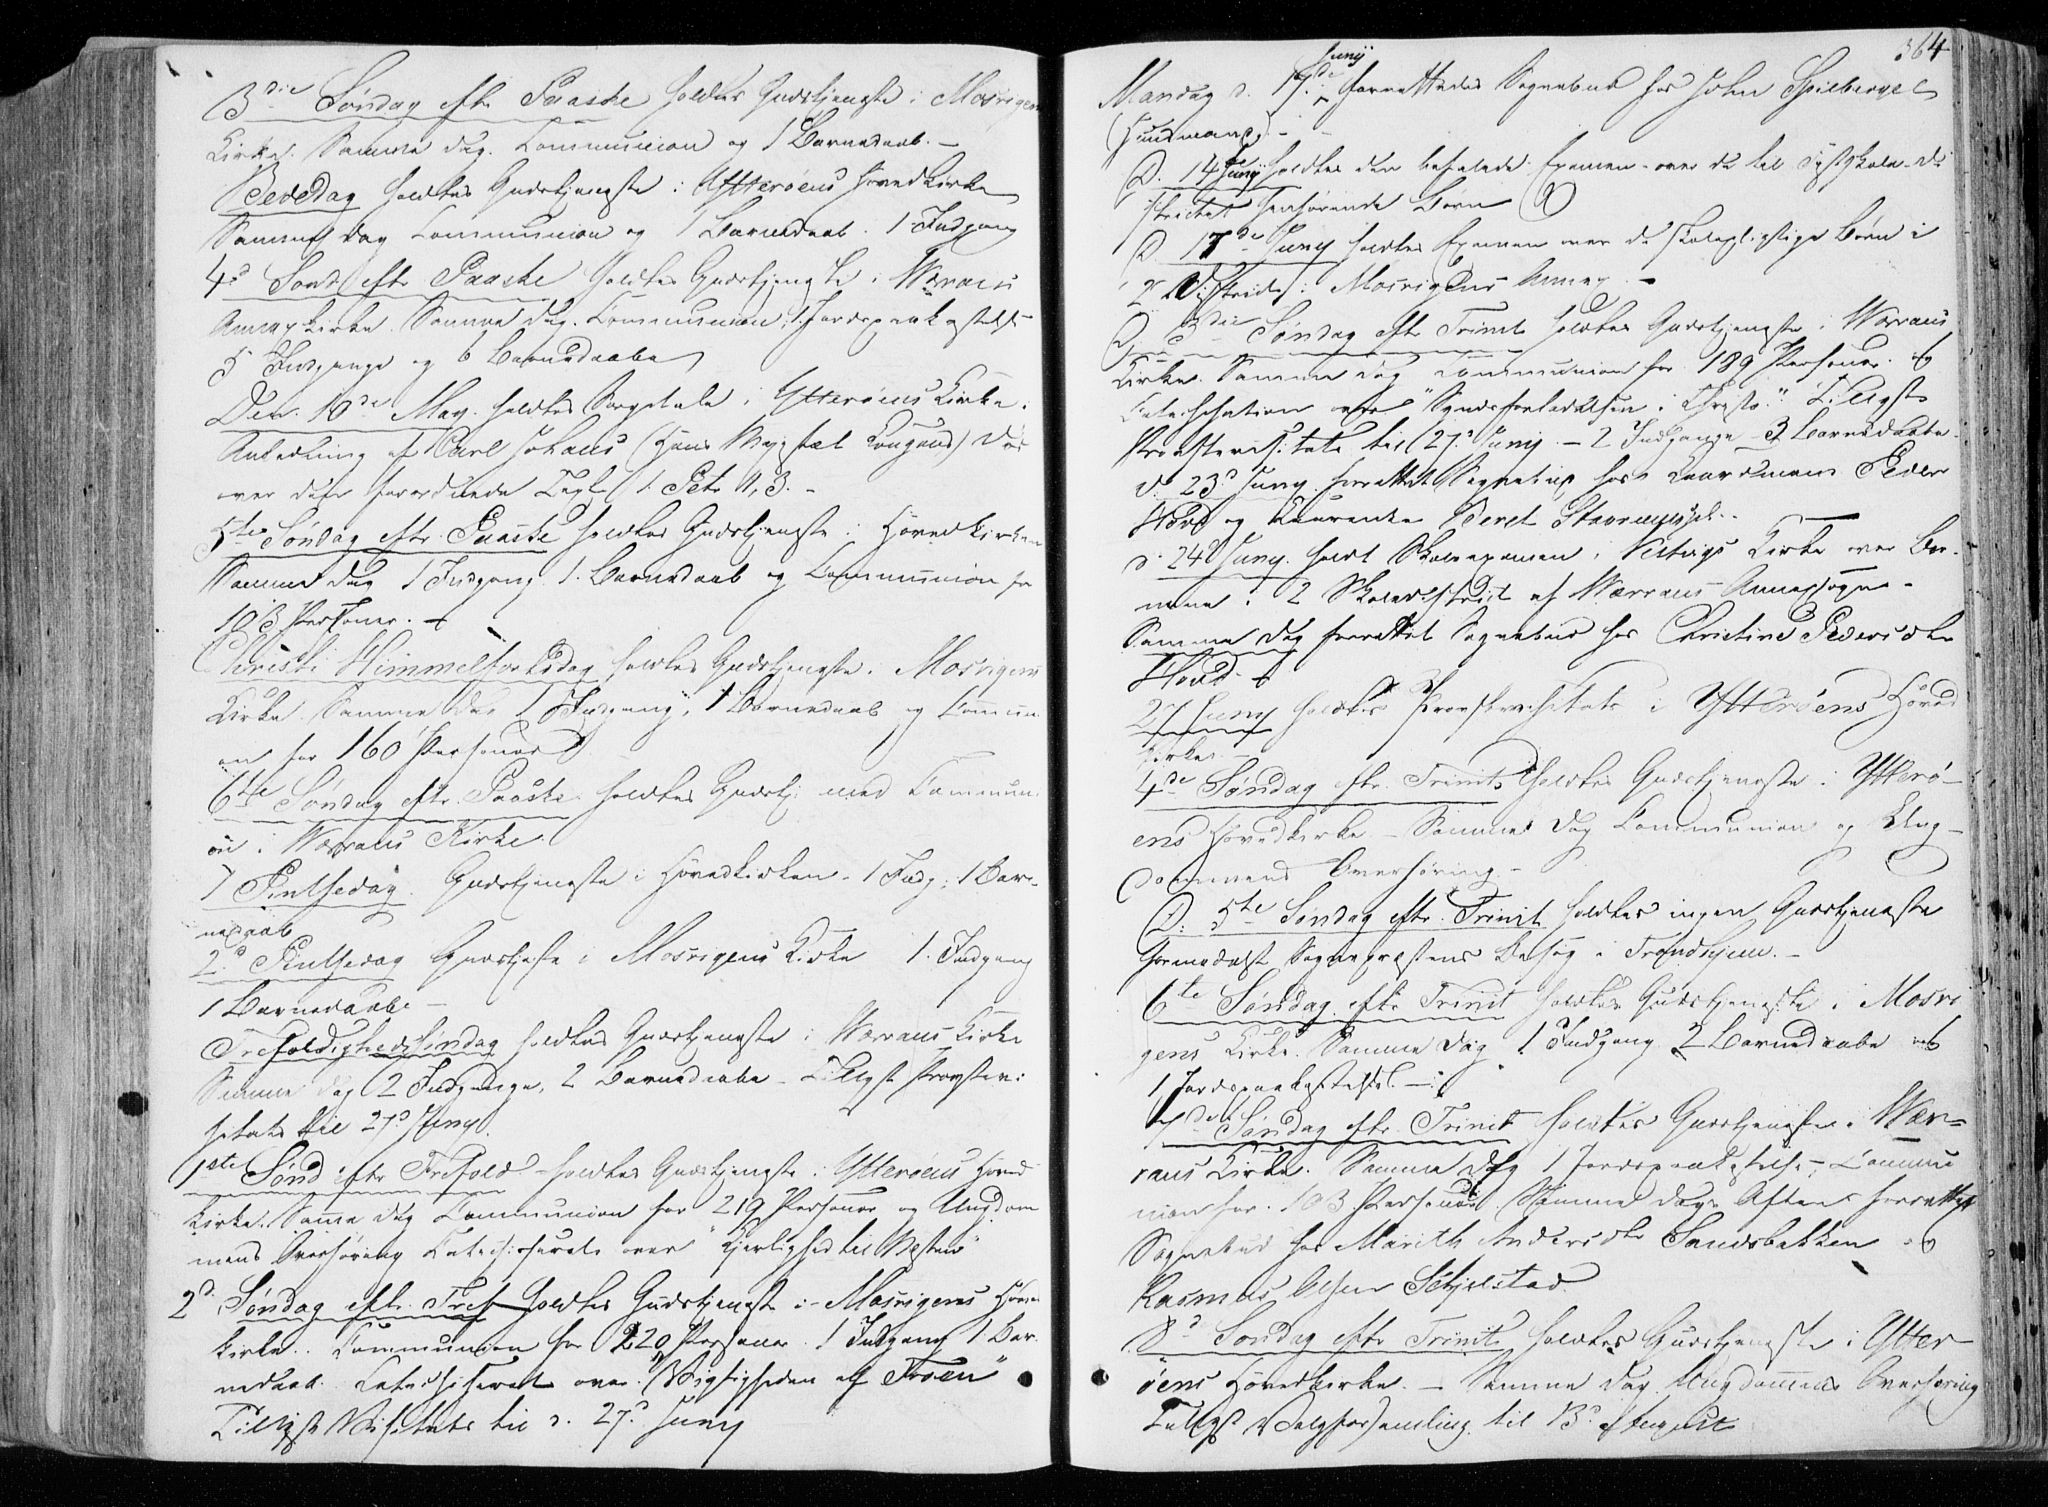 3die Søndag eftr Paaske holdtes Gudstjeneste i Mosvigens
Kirke. Samme dag. Communion og 1 Barnedaab. –
Bededag holdtes Gudstjeneste i Ytterøens Hovedkirke
Samme dag Communion og 1 Barnedaab. 1 Indgang
4d Sønd eftr Paaske holdtes Gudstjeneste i Werrans
Annexkirke. Samme dag. Communion, 1 Jordspaakastelse
5 Indgange og 6 Barnedaabe
Den 10de May holdtes Sørgetale i Ytterøens Kirke i
Anledning af Carl Johans (Hans Majestæt Kongens) Død
over den forordnede Text 1 Petr 1,3. –
5te Søndag eftr Paaske holdtes Gudstjeneste i Hovedkirken
Samme dag 1 Indgang. 1. Barnedaab og Communion for
103 Personer. –
Christi Himmelfartsdag holdtes Gudstjeneste i Mosvigens
Kirke. Samme dag 1 Indgang, 1 Barnedaab og Commun
on for 160 Personer
6te Søndag eftr. Paaske holdtes Gudstj: med Commun
on i Werrans Kirke.
1 Pintsedag. Gudstjeneste i Hovedkirken. 1 Indg; 1 Bar-
nedaab
2d Pintsedag Gudstjeste i Mosvigens Kirke 1. Indgang
1 Barnedaabe –
Trefoldighedssøndag holdtes Gudstjeneste i Werrans Kirke
Samme dag 2 Indgange, 2 Barnedaabe – Tillyst Provstevi-
sitats til 27d Juny.
1ste Sønd eftr Trefold – holdtes Gudstjeneste i Ytterøens Hoved
Kirke. Same dag Communion for 219 Personer og Ungdom
mens Overhøring Catechiserede over "Kjerlighed til Næsten"
2d. Søndag eftr. Tref holdtes Gudstjeneste i – Mosvigens Hoved
kirke. Communion for 220 Personer. 1 Indgang 1 Bar-
nedaab. Catechiseret over "Vigtigheden af Troen"
Tillyst Visitats til d. 27d. Juny
364
Mandag d. 17de Junij forrettedes Sognebud hos John Spilberget
(Huusmand) –
D. 14de Juny holdtes den befalede Examen over de til Fastskole-Di
strictet henhørende Børn
D 17de Juny holdtes Examen over de skolepligtige Børn i
2 Districter i Mosvigens Annex –
D. 3die Søndag eftr Trinit holdtes Gudstjeneste i Werrans
Kirke. Samme dag Communion for 189 Personer. og
Catechisation over "Syndsforladelsen i Christo." Tillyst
Provstevisitats til 27d Junij. – 2 Indgange – 3 Barnedaabe.
d. 23d Juny. forrettet Sognebud hos Kaarmand Peder
Hovd og Kaarenke Beret Stavrumsset. –
d. 24d Juny. holdt Skoleexamen i Vestvigs Kirke over Bør-
nene i 2 Skoledistrict af Werrans Annexsogn –
Samme dag forrettet Sognebud hos Christine Pedersdtr
Hovd –
27 Juny holdtes Provstevisitats i Ytterøens Hoved
kirke. –
4de Søndag eftr. Trinit holdtes Gudstjeneste i Ytterø-
ens Hovedkirke – Samme dag Communion og Ung-
dommens Overhøring –
D: 5te Søndag eftr Trinit holdtes ingen Gudstjeneste
formedelst Sognepræstens Besøg i Trondhjem. –
6te Søndag eftr Trinit holdtes Gudstjeneste i Mosvi
gens Kirke. Samme dag 1 Indgang 2 Barnedaabe og
1 Jordspaakastelse. –
7de Søndag eftr Trinit holdtes Gudstjeneste i Wer-
rans Kirke. Samme dag 1 Jordspaakastelse, Commu
nion for 103 Personer. Samme dags Aften forrettet
Sognebud hos Marith Andersdtr Sandsbakken og
Rasmus Olsen Schjelstad.
8d Søndag eftr Trinit holdtes Gudstjeneste i Ytter
øens Hovedkirke. – Samme dag Ungdommens Overhøring
Tillyst Valgforsamling til 13d August